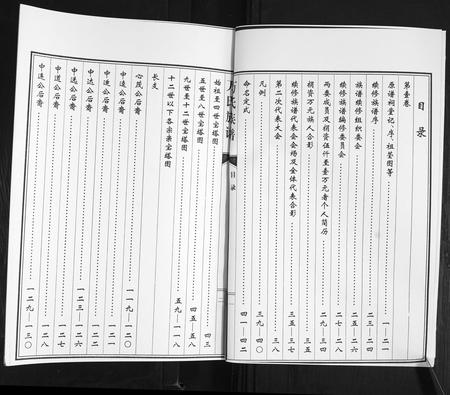 目录
第壹卷
原谱祠堂记、序、祖茔图等 一—二一
续修族谱序 二三—二四
族谱续修组织委会 二五—二六
续修族谱编修委员会 二七—二八
两委成员及捐资伍仟至壹万元者个人简历 二九—三四
捐资万元族人合影 三五
续修族谱代表会会场及全体代表合影 三七
第二次代表大会 三八
凡例 三九—四〇
命名定式 四一—四二
万氏族谱
目录
始祖至四世宝塔图 四三
五世至八世宝塔图 四五—五八
九世至十二世宝塔图 五九—一一八
十二世以下各宗亲宝塔图
长支
心茂公后裔 一一九—一二〇
中选公后裔 一二一
中达公后裔 一二二
中逵公后裔 一二三—一二六
中道公后裔 一二七
中进公后裔 一二八
中连公后裔 一二九—一三〇